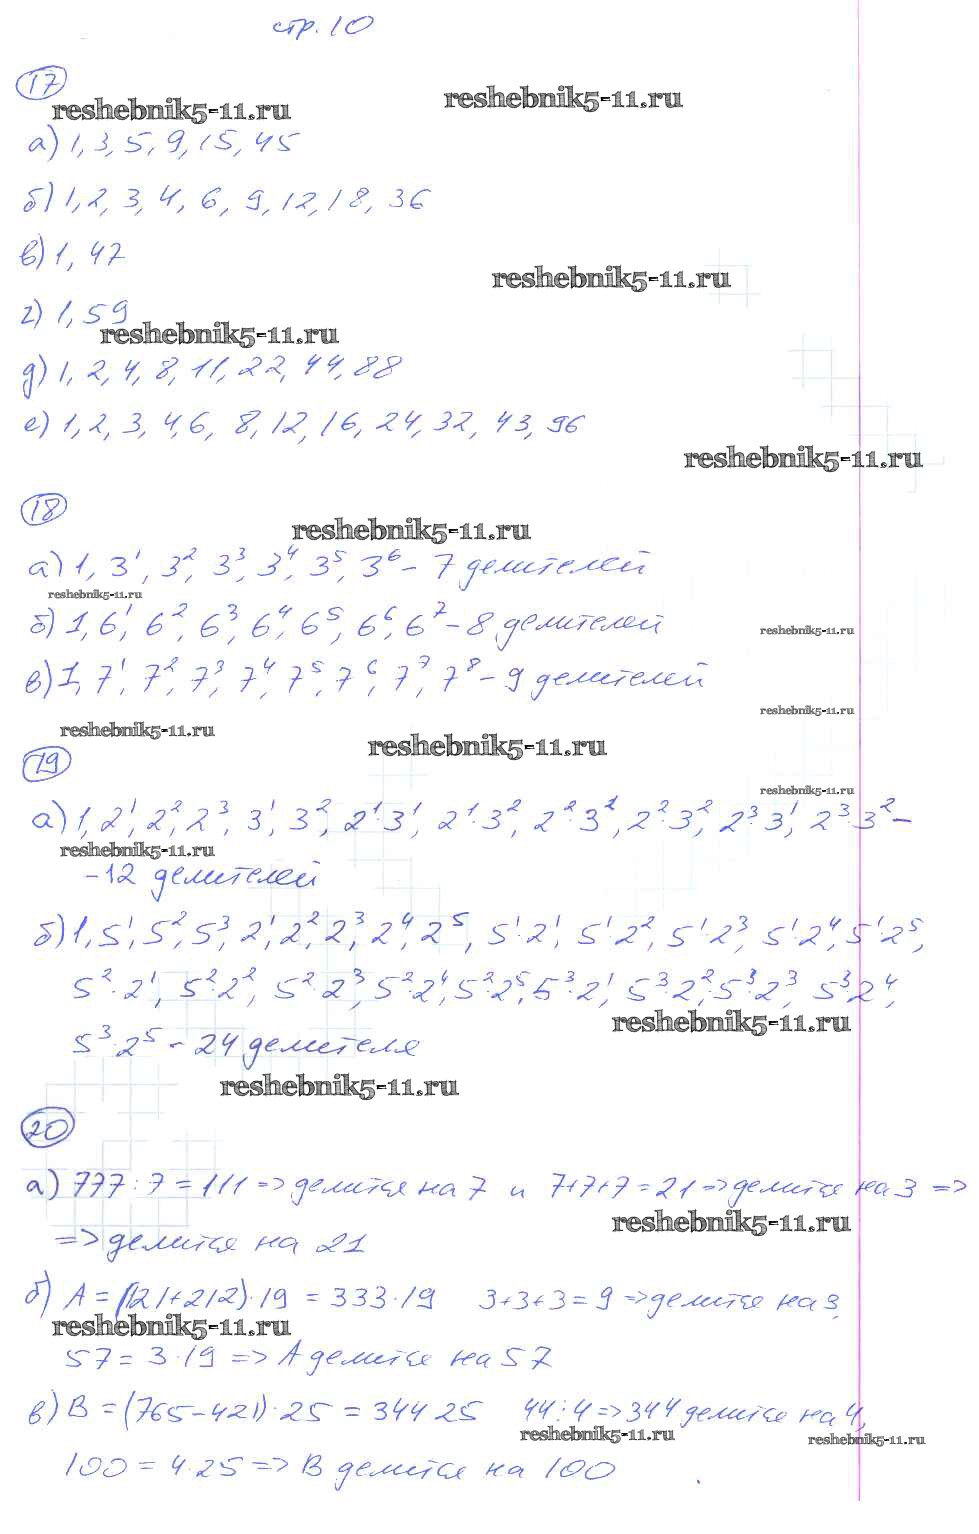 стр. 10
17
reshebnik5-11.ru reshebnik5-11.ru
а) 1, 3, 5, 9, 15, 45
б) 1, 2, 3, 4, 6, 9, 12, 18, 36
в) 1, 47
reshebnik5-11.ru
г) 1, 59
reshebnik5-11.ru
д) 1, 2, 4, 8, 11, 22, 44, 88
е) 1, 2, 3, 4, 6, 8, 12, 16, 24, 32, 43, 96
reshebnik5-11.ru
18
reshebnik5-11.ru
а) 1, 3¹, 3², 3³, 3⁴, 3⁵, 3⁶ – 7 делителей
reshebnik5-11.ru
б) 1, 6¹, 6², 6³, 6⁴, 6⁵, 6⁶, 6⁷ – 8 делителей
reshebnik5-11.ru
в) 1, 7¹, 7², 7³, 7⁴, 7⁵, 7⁶, 7⁷, 7⁸ – 9 делителей
reshebnik5-11.ru
reshebnik5-11.ru reshebnik5-11.ru
19
reshebnik5-11.ru
а) 1, 2¹, 2², 2³, 3¹, 3², 2¹·3¹, 2¹·3², 2²·3¹, 2²·3², 2³·3¹, 2³·3² –
reshebnik5-11.ru
– 12 делителей
б) 1, 5¹, 5², 5³, 2¹, 2², 2³, 2⁴, 2⁵, 5¹·2¹, 5¹·2², 5¹·2³, 5¹·2⁴, 5¹·2⁵,
5²·2¹, 5²·2², 5²·2³, 5²·2⁴, 5²·2⁵, 5³·2¹, 5³·2², 5³·2³, 5³·2⁴,
reshebnik5-11.ru
5³·2⁵ – 24 делителя
reshebnik5-11.ru
20
а) 777 : 7 = 111 => делится на 7 и 7+7+7=21 => делится на 3 =>
reshebnik5-11.ru
=> делится на 21
б) A = (121+212)·19 = 333·19 3+3+3=9 => делится на 3,
reshebnik5-11.ru
57 = 3·19 => A делится на 57
в) B = (765–421)·25 = 344·25 44:4 => 344 делится на 4,
reshebnik5-11.ru reshebnik5-11.ru
100 = 4·25 => B делится на 100